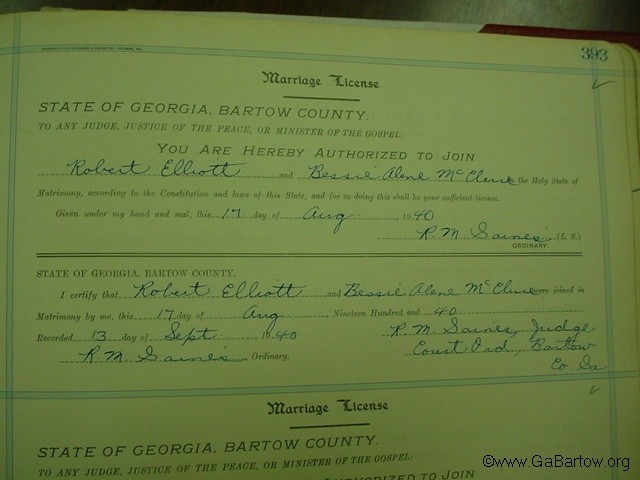 393
Marriage License
STATE OF GEORGIA, BARTOW COUNTY.
TO ANY JUDGE, JUSTICE OF THE PEACE, OR MINISTER OF THE GOSPEL:
YOU ARE HEREBY AUTHORIZED TO JOIN
Robert Elliott and Bessie Alene McClure the Holy State of
Matrimony, according to the Constitution and laws of this State, and for so doing this shall be your sufficient license.
Given under my hand and seal, this 17 day of Aug. 1940
R. M. Gaines (L. S.)
ORDINARY.
STATE OF GEORGIA, BARTOW COUNTY.
I certify that Robert Elliott and Bessie Alene McClure were joined in
Matrimony by me, this 17 day of Aug, Nineteen Hundred and 40
Recorded 13 day of Sept. 1940 R. M. Gaines, Judge
R. M. Gaines, Ordinary. Court Ord, Bartow
Co Ga
Marriage License
STATE OF GEORGIA, BARTOW COUNTY.
TO ANY JUDGE, JUSTICE OF THE PEACE, OR MINISTER OF THE GOSPEL:
AUTHORIZED TO JOIN
©www.GaBartow.org